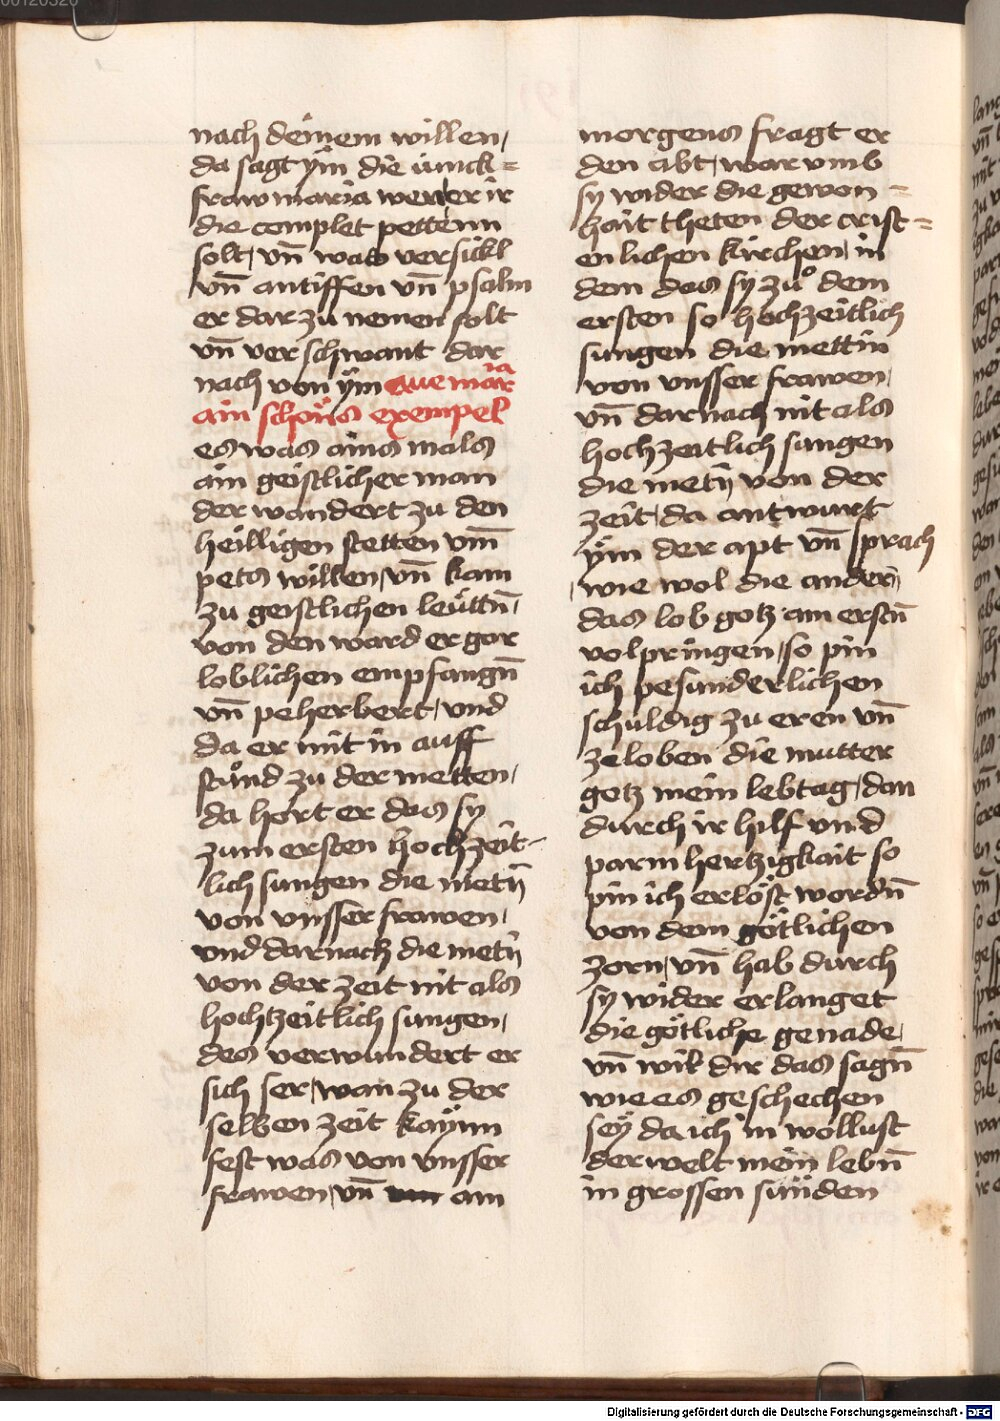 nach deinem willen,
da sagt ÿm die iunck=
fraw maria wenn er ir
die complet pettenn
solt, vn̄ was versickl
vn̄ antiffen vn̄ psalm
er dar zu nemen solt
vn̄ verschwant dar
nach von ÿm Aue maria
ain schöns exempel
es was ains mals
ain geistlicher man
der wandert zu den
heilligen stetten vm̄
petᷤ willen, vn̄ kam
zu geistlichen leüttn̄,
von den ward er gar
loblichen empfangn̄
vn̄ peherbert, vnd
da er mit in auff
stůnd zu der metten,
da hort er das sy
zum ersten hochzeit-
lich sungen die metn̄
von vnsser frawen,
vnd darnach die metn̄
von der zeit nit als
hochtzeitlich sungen,
des verwundert er
sich ser, wan zu der
selben zeit kaÿnn
fest was von vnsser
frawen, vn̄ am
morgens fragt er
den abt, war vmb
sy wider die gewon=
hait theten der crist=
enlichen kirchen, in
dem das sy zů dem
ersten so hochzeitlich
sungen die mettin
von vnsser frawen,
vn̄ darnach nit als
hochzeitlich sungen
die metn̄ von der
zeit, da antwurt
ÿm der apt vn̄ sprach
, wie wol die andern,
das lob gotz am erstn̄
volpringen, so pin
ich pesunderlichen
schuldig zu eren vn̄
zeloben die mutter
gotz mein lebtag, dan
durch ir hilf vnd
parmhertzigkait so
pin ich erlöst wordn̄
von dem götlichen
zorn, vn̄ hab durch
sy wider erlanget
die götliche genade,
vn̄ wil dir das sagn̄
wie es geschechen
seÿ da ich in wollust
der welt mein lebn̄
in grossen sünden
Digitalisierung gefördert durch die Deutsche Forschungsgemeinschaft - DFG